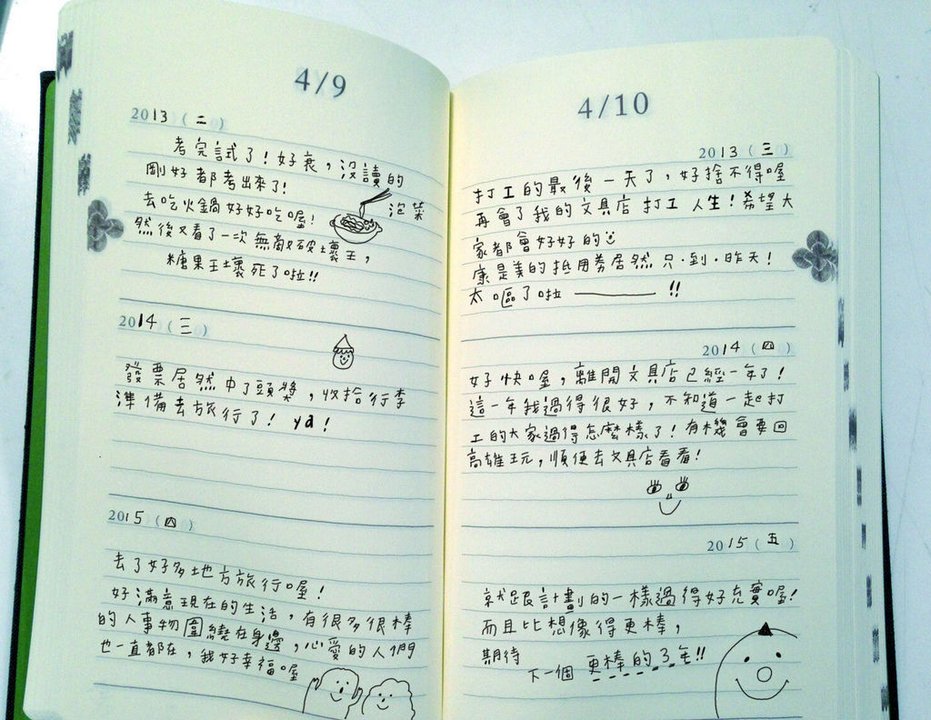 4/9
2013 (二)
考完試了！好衰，沒讀的
剛好都考出來了！
去吃火鍋好好吃喔！
泡菜
然後又看了一次無敵破壞王，
糖果王壞死了啦!!
2014 (三)
發票居然中了頭獎，收拾行李
準備去旅行了！ya！
2015 (四)
去了好多地方旅行喔！
好滿意現在的生活，有很多很棒
的人事物圍繞在身邊，心愛的人們
也一直都在，我好幸福喔
4/10
2013 (三)
打工的最後一天了，好捨不得喔
再會了我的文具店打工人生！希望大
家都會好好的
康是美的抵用券居然只．到．昨天！
太嘔了啦———!!
2014 (四)
好快喔，離開文具店已經一年了！
這一年我過得很好，不知道一起打
工的大家過得怎麼樣了！有機會要回
高雄玩，順便去文具店看看！
2015 (五)
就跟計劃的一樣過得好充實喔！
而且比想像得更棒，
期待
下一個 更棒的3年!!